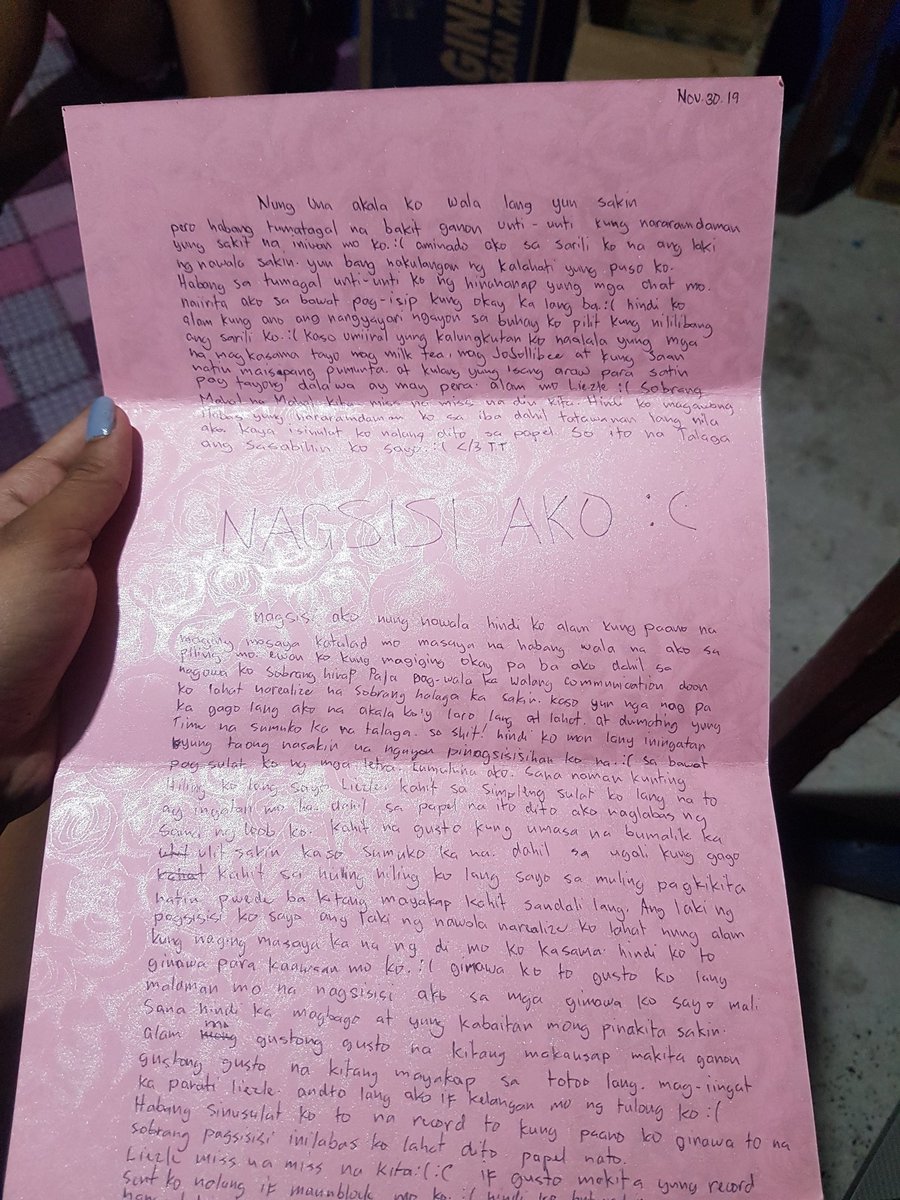 GINE
SAN M
Nov. 30. 19
Nung Una akala ko wala lang yun sakin
pero habang tumatagal na bakit ganon unti-unti kung nararamdaman
yung sakit na iniwan mo ko. :( aminado ako sa sarili ko na ang laki
ng nawala sakin. yun bang nakulangan ng kalahati yung puso ko.
Habang sa tumagal unti-unti ko ng hinahanap yung mga chat mo.
naiirita ako sa bawat pag-isip kung okay ka lang ba. :( hindi ko
alam kung ano ang nangyayari ngayon sa buhay ko pilit kung nililibang
ang sarili ko. :( kaso umiiral yung kalungkutan ko naalala yung mga
na magkasama tayo mag milk tea, mag Jollibee at kung saan
natin maisipang pumunta. at kulang yung isang araw para satin
pag tayong dalawa ay may pera. alam mo Liezle :( Sobrang
Mahal na Mahal kita miss na miss na din kita. Hindi ko magawang
yung nararamdaman ko sa iba dahil tatawanan lang nila
ako kaya isinulat ko nalang dito sa papel. So ito na Talaga
ang sasabihin ko sayo. :( </3 TT
NAGSISI AKO :(
nagsisi ako nung nawala hindi ko alam kung paano na
maging masaya katulad mo masaya na habang wala na ako sa
piling mo. ewan ko kung magiging okay pa ba ako dahil sa
nagawa ko sobrang hirap Pala pag-wala ka walang communication doon
ko lahat narealize na sobrang halaga ka sakin. kaso yun nga nag pa
ka gago lang ako na akala ko'y laro lang at lahat. at dumating yung
Time na sumuko ka na talaga. so shit! hindi ko man lang iningatan
yung taong nasakin na ngayon pinagsisisihan ko na. :( sa bawat
pag sulat ko ng mga letra. Lumuluha ako. Sana naman kunting
Hiling ko lang sayo Liezle. kahit sa simpleng sulat ko lang na to
ay ingatan mo ha. dahil sa papel na ito dito ako naglabas ng
Sama ng loob ko. kahit na gusto kung umasa na bumalik ka
ulit sakin kaso sumuko ka na. dahil sa ugali kung gago
kahit sa huling hiling ko lang sayo sa muling pagkikita
natin pwede ba kitang mayakap kahit sandali lang. Ang laki ng
pagsisisi ko sayo ang laki ng nawala narealize ko lahat nung alam
kung naging masaya ka na ng di mo ko kasama. hindi ko to
ginawa para kaawaan mo ko. :( ginawa ko to gusto ko lang
malaman mo na nagsisisi ako sa mga ginawa ko sayo mali.
Sana hindi ka magbago at yung kabaitan mong pinakita sakin.
alam mo gustong gusto na kitang makausap makita ganon
gustong gusto na kitang mayakap sa totoo lang. mag-iingat
ka parati liezle. andto lang ako if kelangan mo ng tulong ko :(
Habang sinusulat ko to na record to kung paano ko ginawa to na
sobrang pagsisisi inilabas ko lahat dito papel nato.
Liezle miss na miss na kita :( :( if gusto makita yung record
sent ko nalang if maunblock mo ko. :( hindi ko